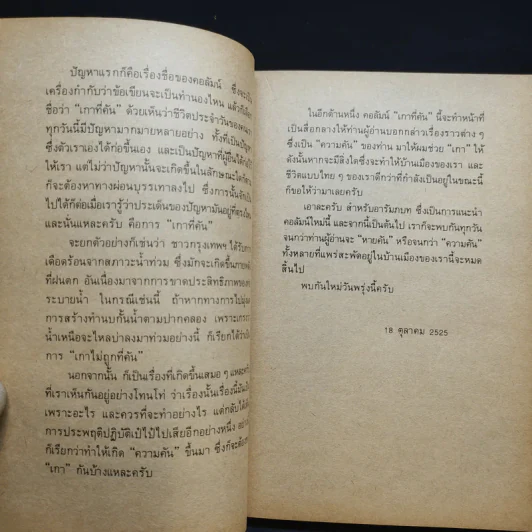 ปัญหาแรกก็คือเรื่องชื่อของคอลัมน์ ซึ่งจะเป็น
เครื่องกำกับว่าข้อเขียนจะเป็นทำนองไหน แล้วก็
ชื่อว่า "เกาที่คัน" ด้วยเห็นว่าชีวิตประจำวันของ
ทุกวันนี้มีปัญหามากมายหลายอย่าง ทั้งที่เป็นปัญหา
ซึ่งตัวเราเองได้ก่อขึ้นเอง และเป็นปัญหาที่ผู้อื่นได้
ให้เรา แต่ไม่ว่าปัญหานั้นจะเกิดขึ้นในลักษณะใด
ก็จะต้องหาทางผ่อนบรรเทาลงไป ซึ่งการนั้น
ไปได้ก็ต่อเมื่อเรารู้ว่าประเด็นของปัญหามันอยู่ที่
และนั่นแหละครับ คือการ "เกาที่คัน"
จะยกตัวอย่างก็เช่นว่า ชาวกรุงเทพฯ ได้รับ
เดือดร้อนจากสภาวะน้ำท่วม ซึ่งมักจะเกิดขึ้น
ที่ฝนตก อันเนื่องมาจากการขาดประสิทธิภาพของ
ระบายน้ำ ในกรณีเช่นนี้ ถ้าหากทางการไปมุ่ง
การสร้างทำนบกั้นน้ำตามปากคลอง เพราะเกรง
น้ำเหนือจะไหลบ่าลงมาท่วมอย่างนี้ ก็เรียกได้ว่า
การ "เกาไม่ถูกที่คัน"
นอกจากนั้น ก็เป็นเรื่องที่เกิดขึ้นเสมอ ๆ แหละครับ
ที่เราเห็นกันอยู่อย่างโทนโท่ ว่าเรื่องนั้นเรื่องนี้มัน
เพราะอะไร และควรที่จะทำอย่างไร แต่กลับ
การประพฤติปฏิบัติเป๋ไป๋ไปเสียอีกอย่างหนึ่ง
ก็เรียกว่าทำให้เกิด "ความคัน" ขึ้นมา ซึ่งก็จะต้อง
"เกา" กันบ้างแหละครับ
ในอีกด้านหนึ่ง คอลัมน์ "เกาที่คัน" นี้จะทำหน้าที่
เป็นสื่อกลางให้ท่านผู้อ่านบอกกล่าวเรื่องราวต่าง ๆ
ซึ่งเป็น "ความคัน" ของท่าน มาให้ผมช่วย "เกา" ให้
ดังนั้นหากจะมีสิ่งใดซึ่งจะทำให้บ้านเมืองของเรา และ
ชีวิตแบบไทย ๆ ของเราดีกว่าที่กำลังเป็นอยู่ในขณะนี้
ก็ขอให้ว่ามาเลยครับ
เอาละครับ สำหรับอารัมภบท ซึ่งเป็นการแนะนำ
คอลัมน์ใหม่นี้ และจากนี้เป็นต้นไป เราก็จะพบกันทุกวัน
จนกว่าท่านผู้อ่านจะ "หายคัน" หรือจนกว่า "ความคัน"
ทั้งหลายที่แพร่สะพัดอยู่ในบ้านเมืองของเรานี้จะหมด
สิ้นไป
พบกันใหม่วันพรุ่งนี้ครับ
18 ตุลาคม 2525